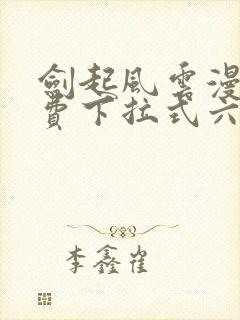 劍起風雲漫
費下拉式六
李鑫崔